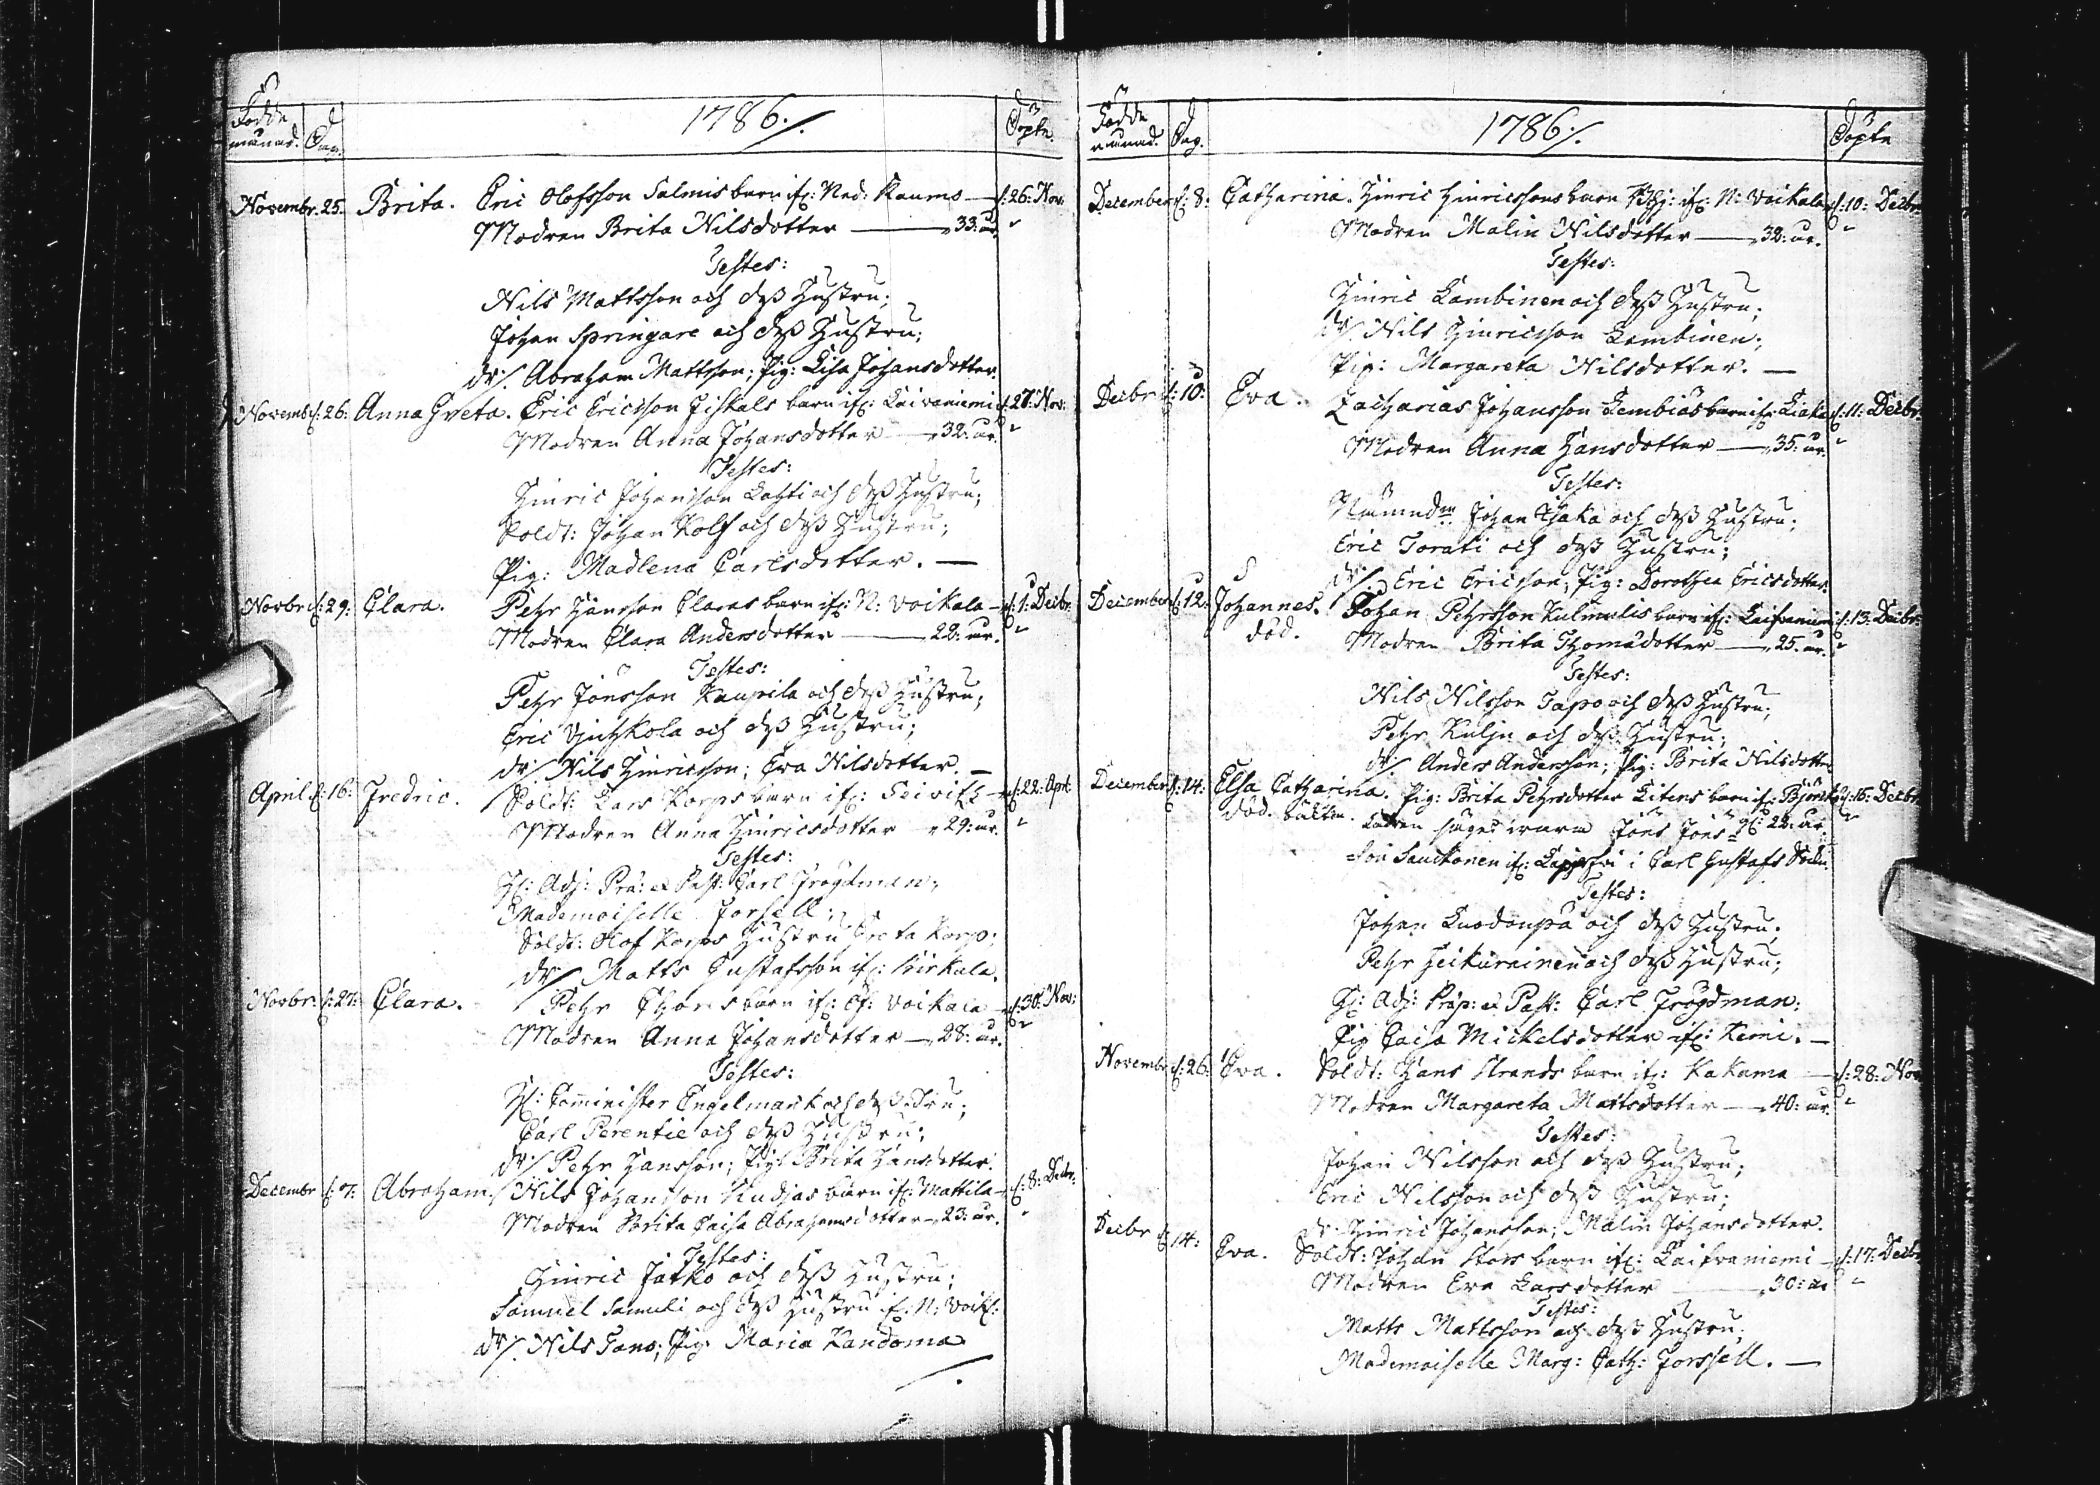 Födde
månad. Dag. 1786./. Döpte.
Novembr. 25. Brita. Eric Olofsson Salmis barn if: Ned: Raumo — d: 26: Nov:
Modren Brita Nilsdotter — 33: år.
Testes:
Nils Mattsson och dess Hustru;
Johan Springare och dess Hustru;
dr/. Abraham Mattsson; Pig: Lisa Johansdotter.
Novemb d: 26: Anna Greta. Eric Ericsson barn if: Laivaniemi d: 27: Nov:
Modren Anna Johansdotter — 32: år.
Testes:
Hinric Johansson Lahti och dess Hustru;
Soldt: Johan Kolf och dess Hustru;
Pig: Madlena Carlsdotter. —
Novbr d: 29: Clara. Pehr Hansson Claras barn if: N: Voikala — d: 1: Decbr.
Modren Clara Andersdotter — 22: år.
Testes:
Pehr Jönsson Kauppila och dess Hustru;
Eric och dess Hustru;
dr/. Nils Hinricsson; Eva Nilsdotter. —
April d: 16: Fredric. Soldt: Lars Korps barn if: — d: 22: Apr:
Modren Anna Hinricsdotter — 29: år.
Testes:
H: Adj: Præ: et Past: Carl Frogdman;
Mademoiselle Forsell;
Soldt: Olof Korps Hustru Greta Korp;
dr/ Matts Gustafsson if: Kirkala.
Novbr. d: 27: Clara. Pehr Thors barn if: Öf: Voikala — d: 30: Nov:
Modren Anna Johansdotter — 28: år.
Testes:
H: Comminister Engelmark och dess Fru;
Carl Perentie och dess Hustru;
dr/ Pehr Hansson; Pig: Brita Hansdotter.
Decembr d: 7: Abraham. Nils Johansson Kudjas barn if: Mattila — d: 8: Decbr.
Modren Brita Caisa Abrahamsdotter — 23: år.
Testes:
Hinric Jatko och dess Hustru;
Samuel Samuli och dess Hustru if: N: Voik:
dr/. Nils Tano; Pig: Maria Kandoma
/.
Födde
månad. Dag. 1786/. Döpte
December d: 8: Catharina. Hinric Hinricssons barn if: N: Voikala d: 10: Decbr
Modren Malin Nilsdotter — 32: år.
Testes:
Hinric Lambinen och dess Hustru;
dr/. Nils Hinricsson Lambinen;
Pig: Margareta Nilsdotter. —
Decbr d: 10: Eva. Zacharias Johansson barn if: Liaka d: 11: Decbr.
Modren Anna Hansdotter — 35: år.
Testes:
Nämndm Johan Liaka och dess Hustru;
Eric Torati och dess Hustru;
dr/. Eric Ericsson; Pig: Dorothea Ericsdotter.
December d: 12: Johannes. Johan Pehrsson barn if: Laivaniemi d: 13: Decbr:
död. Modren Brita Thomædotter — 25. år.
Testes:
Nils Nilsson Tapo och dess Hustru;
Pehr Kulju och dess Hustru;
dr/. Anders Andersson; Pig: Brita Nilsdotter
December d: 14: Elsa Catharina. Pig: Brita Pehrsdotter Litens barn if: d: 15: Decbr.
död. Fadren säges wara Jöns Jöns 22: år.
son Sauckonen if: i Carl Gustafs
Testes:
Johan Luodonpä och dess Hustru.
Pehr och dess Hustru;
H: Adj: Præp: et Past: Carl Frogdman;
Pig Caisa Mickelsdotter if: Kemi. —
Novembr d: 26: Eva. Soldt: Hans Strands barn if: Kakama — d: 28: Nov
Modren Margareta Mattsdotter — 40: år.
Testes:
Johan Nilsson och dess Hustru;
Eric Nilsson och dess Hustru;
dr: Hinric Johansson; Malin Johansdotter.
Decbr d: 14: Eva. Soldt: Johan Stors barn if: Laivaniemi — d: 17: Decbr
Modren Eva Larsdotter — 30: år
Testes:
Matts Mattsson och dess Hustru;
Mademoiselle Marg: Cath: Forssell. —